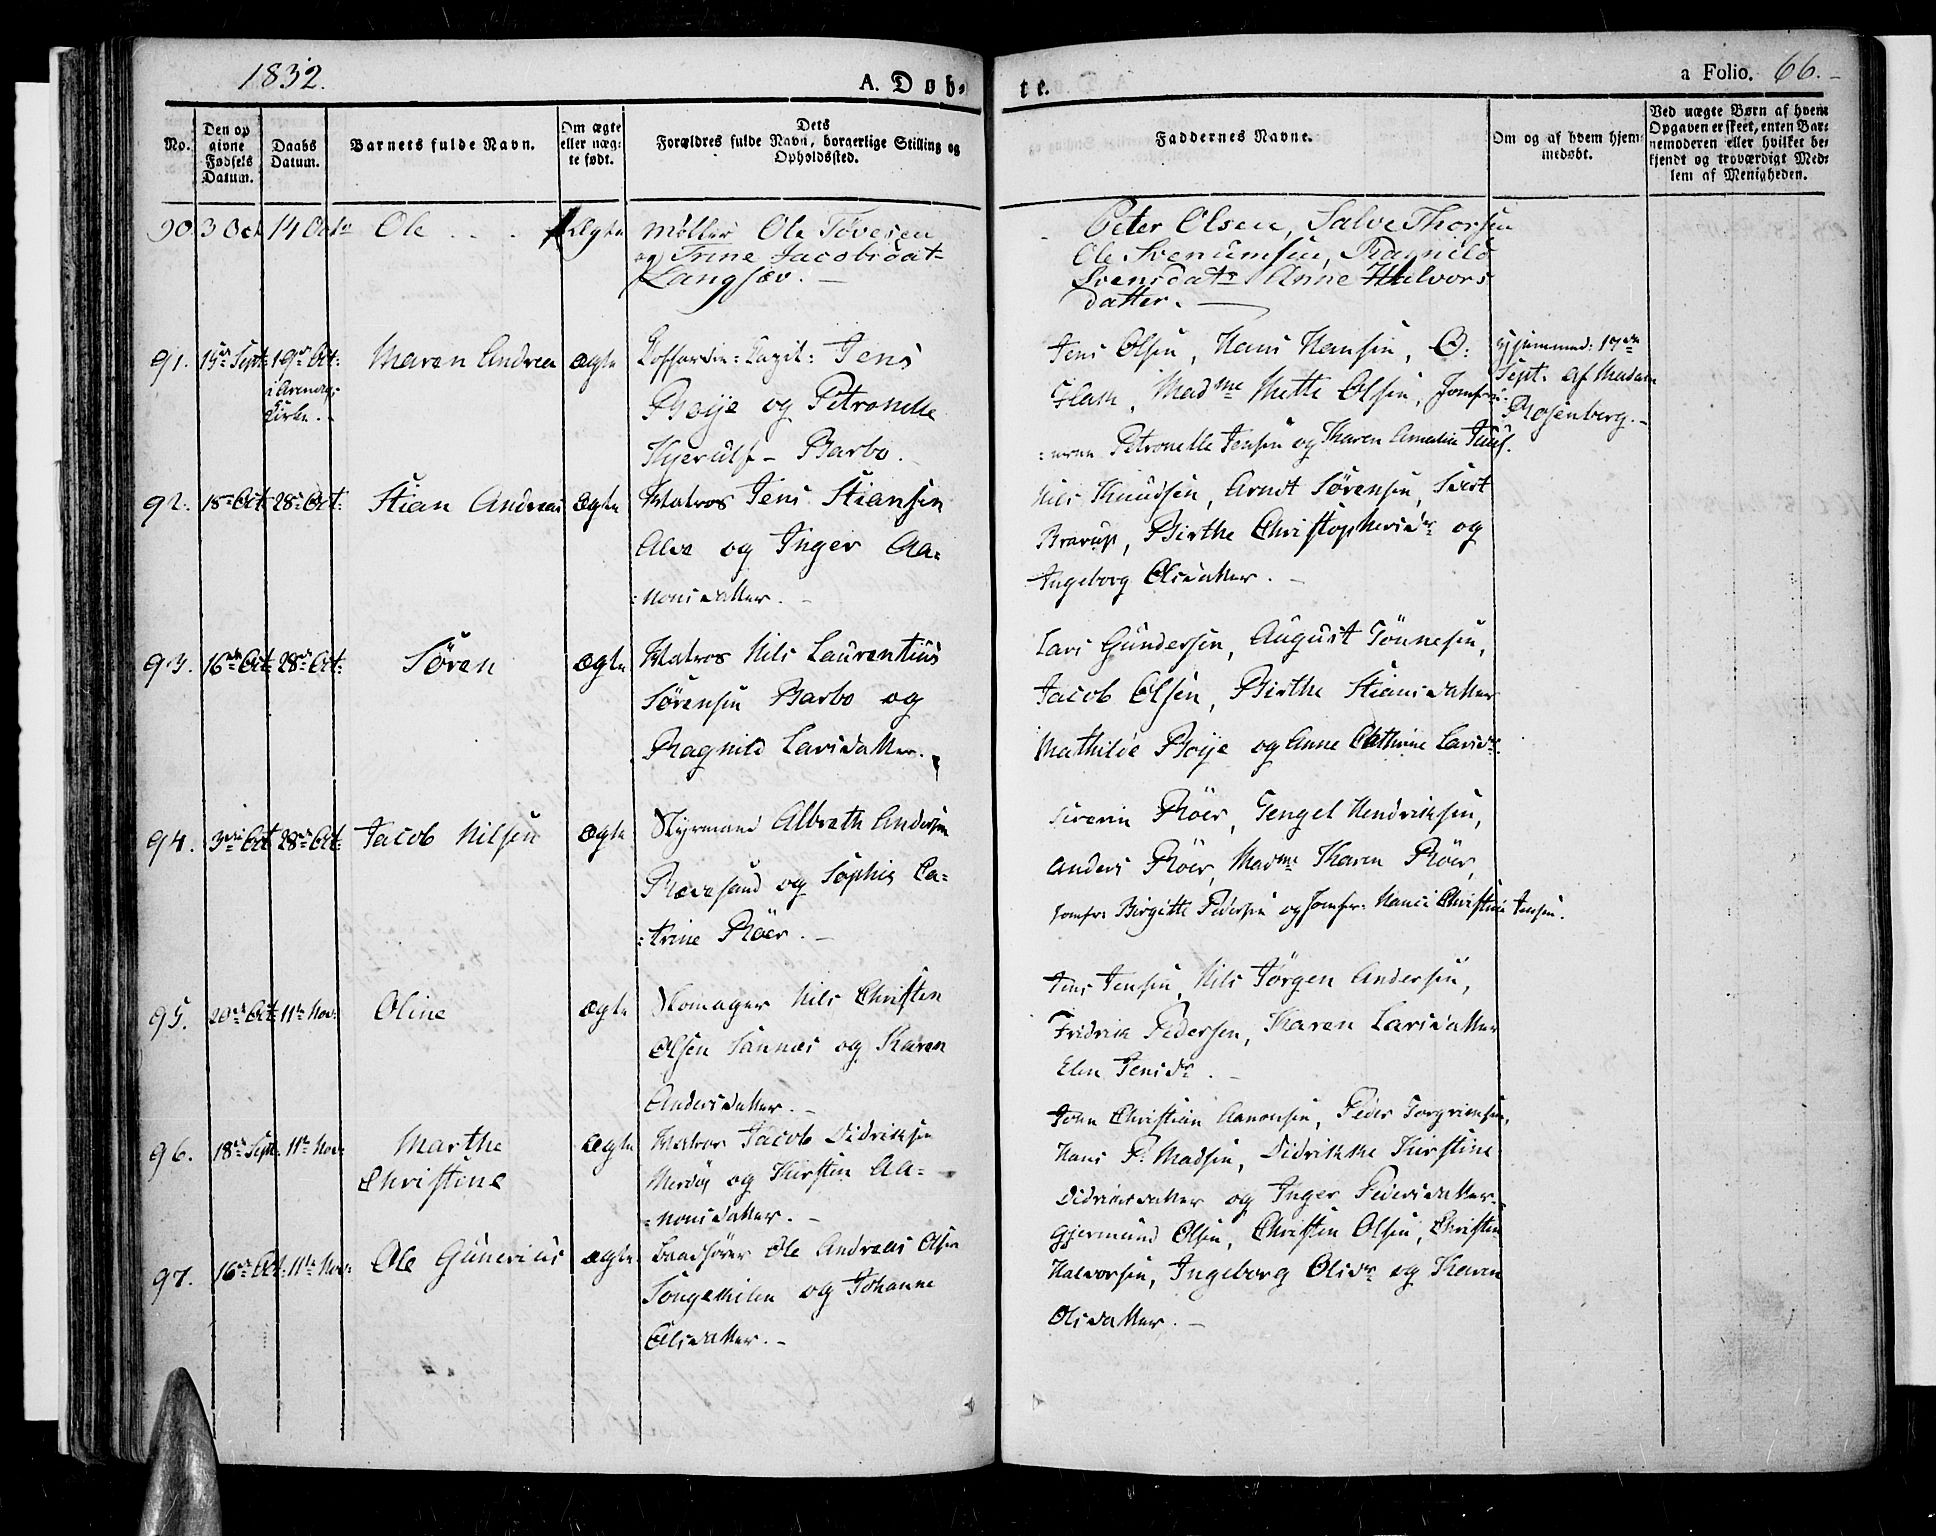 1832.
A. Døb-
te.
a Folio. 66.
No.
Den op
givne
Fødsels
Datum.
Daabs
Datum.
Barnets fulde Navn.
Om ægte
eller uæg-
te født.
Dets
Forældres fulde Navn, borgerlige Stilling og
Opholdssted.
Faddernes Navne.
Om og af hvem hjem-
medøbt.
Ved uægte Børn af hvem
Opgaven er skeet, enten Bar-
nemoderen eller hvilket be-
kjendt og troværdigt Med-
lem af Menigheden.
90. 3 Oct 14 Octr Ole Ægte Møller Ole Tovesen
og Trine Jacobsdat-
Langsæv.
Peter Olsen, Salve Thorsen
Ole Svenumsen, Ragnild
Svensdatr Anne Halvors
datter.
91. 15de Sept: 19de Oct: Maren Andrea ægte Coffardie: Capit: Jens
i Arendals
Kirke.
Boije og Petronelle
Kjerulf - Barbo.
Jens Olsen, Hans Hansen, O:
Flath, Madme Mette Olsen, Jomfru-
=erne Petronelle Jensen og Karen Amalia Juul.
Hjemmed: 17de
Sept. af Madam
Rosenberg.
92. 18de Oct 28de Oct: Stian Andreas ægte Matros Jens Stiansen
Alve og Inger Aa=
=nonsdatter.
Nils Knudsen, Arndt Sørensen,
Brarup, Birthe Christophersdr og
Ingeborg Olsdatter.
93. 16de Oct: 28de Oct: Søren ægte Matros Nils Laurentius
Sørensen Barbo og
Ragnild Larsdatter.
Lars Gundersen, August Tønnesen,
Jacob Olsen, Birthe Stiansdatter
Mathilde Boije og Anne Cathrine Larsdr.
94. 3die Oct 28de Oct: Jacob Nilsen ægte Styrmand Albreth Andersen
Revesand og Sophie Ca-
=trine Röer.
Severin Röer, Tengel Hendriksen,
Anders Röer, Madme Karen Röer,
Jomfr: Birgitte Pedersen og Jomfr: Hanse Christine Jensen.
95. 20de Oct: 11te Nov: Oline ægte Skomager Nils Christen
Olsen Sannæs og Karen
Andersdatter.
Jens Jensen, Nils Jörgen Andersen,
Fridrik Pedersen, Karen Larsdatter
Elen Jensdr.
96. 18de Sept. 11te Nov: Marthe
Christine
ægte Matros Jacob Didriksen
Merdøe og Kirsten Aa=
=nonsdatter.
John Christian Aanonsen, Peder Torgrimsen,
Hans P. Madsen, Didrikke Kirstine
Didriksdatter og Inger Pedersdatter.
97. 16de Oct: 11te Nov: Ole Gunerius ægte Baadfører Ole Andreas Olsen
Songekilen og Johanne
Olsdatter.
Gjermund Olsen, Christen Olsen, Christen
Halvorsen, Ingeborg Olsdr og Karen
Olsdatter.